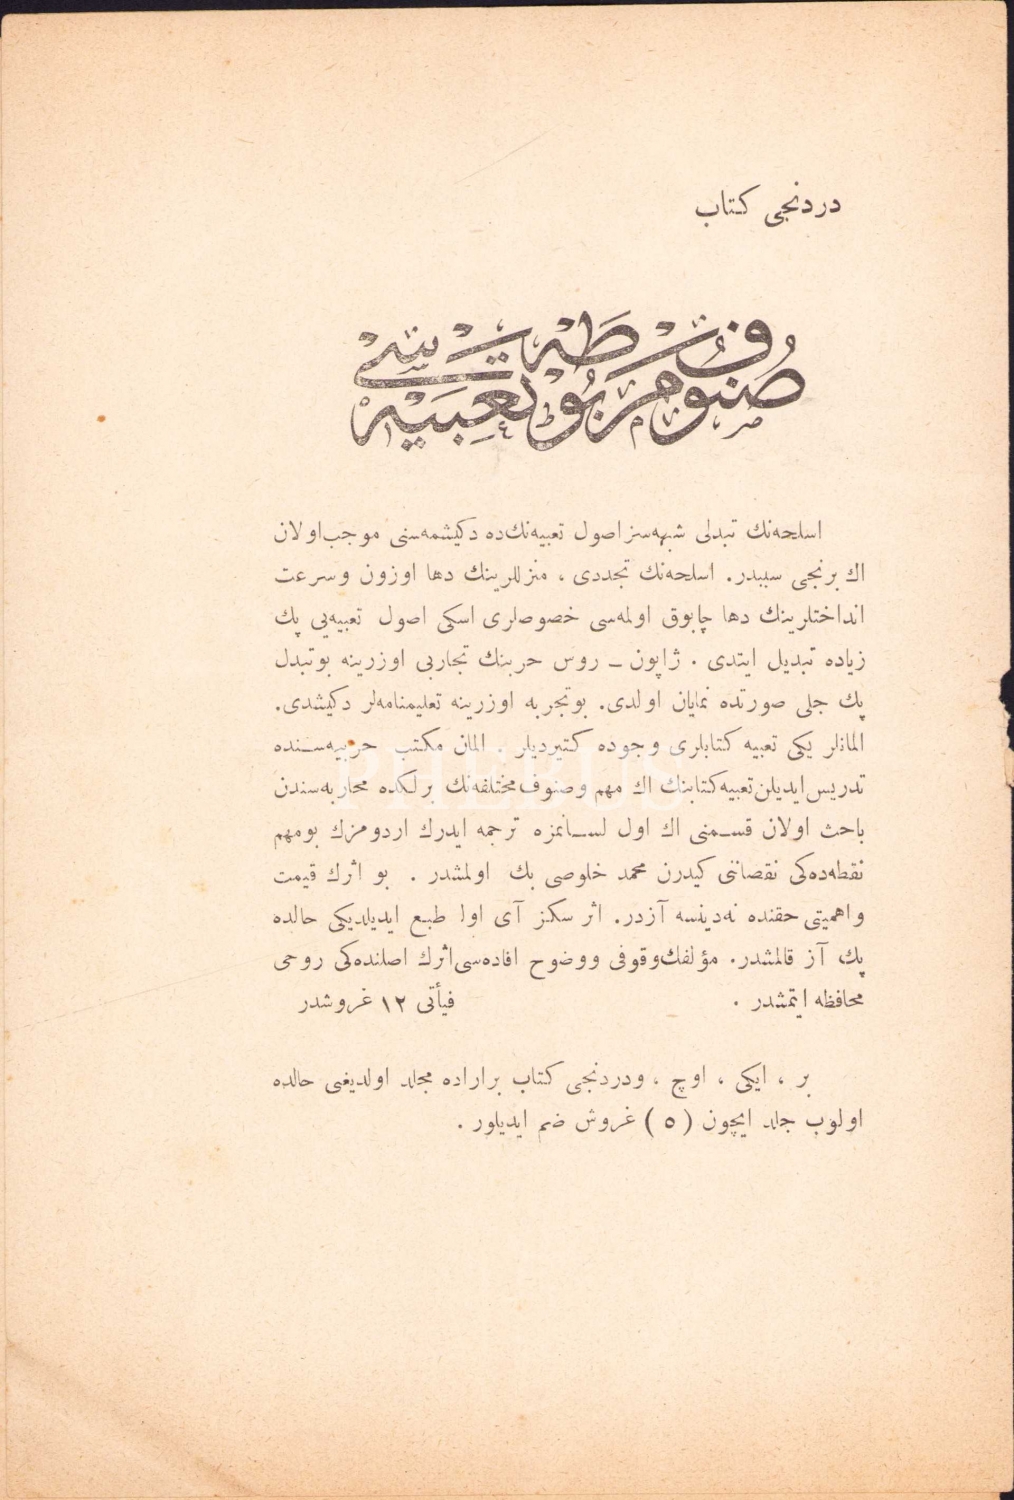 دردنجی كتاب
صنوف مربوطه تعبیه‌سی
اسلحه‌نك تبدلی شبهه‌سز اصول تعبیه‌نك‌ده دكیشمه‌سنی موجب اولان
اك برنجی سببدر. اسلحه‌نك تجددی ، منزللرینك دها اوزون وسرعت
انداختلرینك دها چابوق اولمه‌سی خصوصلری اسكی اصول تعبیه‌یی پك
زیاده تبدیل ایتدی . ژاپون ــ روس حربنك تجاربی اوزرینه بوتبدل
پك جلی صورتده نمایان اولدی. بوتجربه اوزرینه تعلیمنامه‌لر دكیشدی.
المانلر یكی تعبیه كتابلری وجوده كتیردیلر . المان مكتب حربیه‌سنده
تدریس ایدیلن تعبیه كتابنك اك مهم وصنوف مختلفه‌نك برلكده محاربه‌سندن
باحث اولان قسمنی اك اول لسانمزه ترجمه ایدرك اردومزك بومهم
نقطه‌ده‌كی نقصاننی كیدرن محمد خلوصی بك اولمشدر . بو اثرك قیمت
واهمیتی حقنده نه‌دینسه آزدر. اثر سكز آی اول طبع ایدیلدیكی حالده
پك آز قالمشدر. مؤلفك‌وقوفی ووضوح افاده‌سی‌اثرك اصلنده‌كی روحی
محافظه ایتمشدر . فیأتی ١٢ غروشدر
بر ، ایكی ، اوچ ، ودردنجی كتاب براراده مجلد اولدیغی حالده
اولوب جلد ایچون ( ٥ ) غروش ضم ایدیلور .
PHEBUS